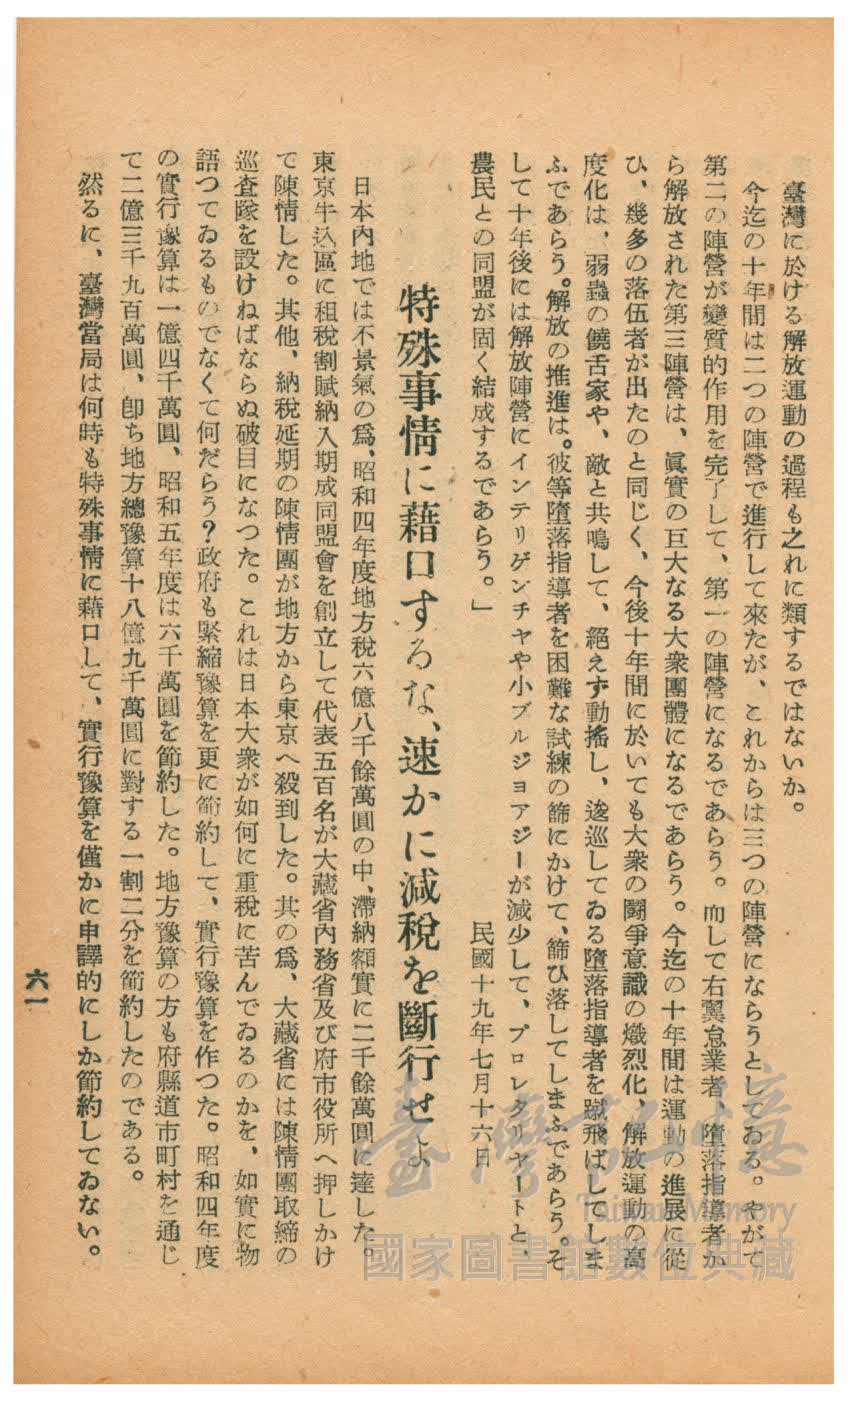 臺灣に於ける解放運動の過程も之れに類するではないか。
今迄の十年間は二つの陣營で進行して來たが、これからは三つの陣營にならうとしてゐる。やがて
第二の陣營が變質的作用を完了して、第一の陣營になるであらう。而して右翼怠業者、墮落指導者か
ら解放された第三陣營は、眞實の巨大なる大衆團體になるであらう。今迄の十年間は運動の進展に從
ひ、幾多の落伍者が出たのと同じく、今後十年間に於いても大衆の鬪爭意識の熾烈化、解放運動の高
度化は、弱蟲の饒舌家や、敵と共鳴して、絕えず動搖し、逡巡してゐる墮落指導者を蹴飛ばしてしま
ふであらう。解放の推進は。彼等墮落指導者を困難な試練の篩にかけて、篩ひ落してしまふであらう。そ
して十年後には解放陣營にインテリゲンチヤや小ブルジョアジーが減少して、プロレタリヤートと、
農民との同盟が固く結成するであらう。」
民國十九年七月十六日
特殊事情に藉口するな、速かに減稅を斷行せよ
日本內地では不景氣の爲、昭和四年度地方稅六億八千餘萬圓の中、滯納額實に二千餘萬圓に達した。
東京牛込區に租稅割賦納入期成同盟會を創立して代表五百名が大藏省內務省及び府市役所へ押しかけ
て陳情した。其他、納稅延期の陳情團が地方から東京へ殺到した。其の爲、大藏省には陳情團取締の
巡査隊を設けねばならぬ破目になつた。これは日本大衆が如何に重稅に苦んでゐるのかを、如實に物
語つてゐるものでなくて何だらう？政府も緊縮豫算を更に節約して、實行豫算を作つた。昭和四年度
の實行豫算は一億四千萬圓、昭和五年度は六千萬圓を節約した。地方豫算の方も府縣道市町村を通じ
て二億三千九百萬圓、卽ち地方總豫算十八億九千萬圓に對する一割二分を節約したのである。
然るに、臺灣當局は何時も特殊事情に藉口して、實行豫算を僅かに申譯的にしか節約してゐない。
六一
臺灣記憶
Taiwan Memory
國家圖書館數位典藏